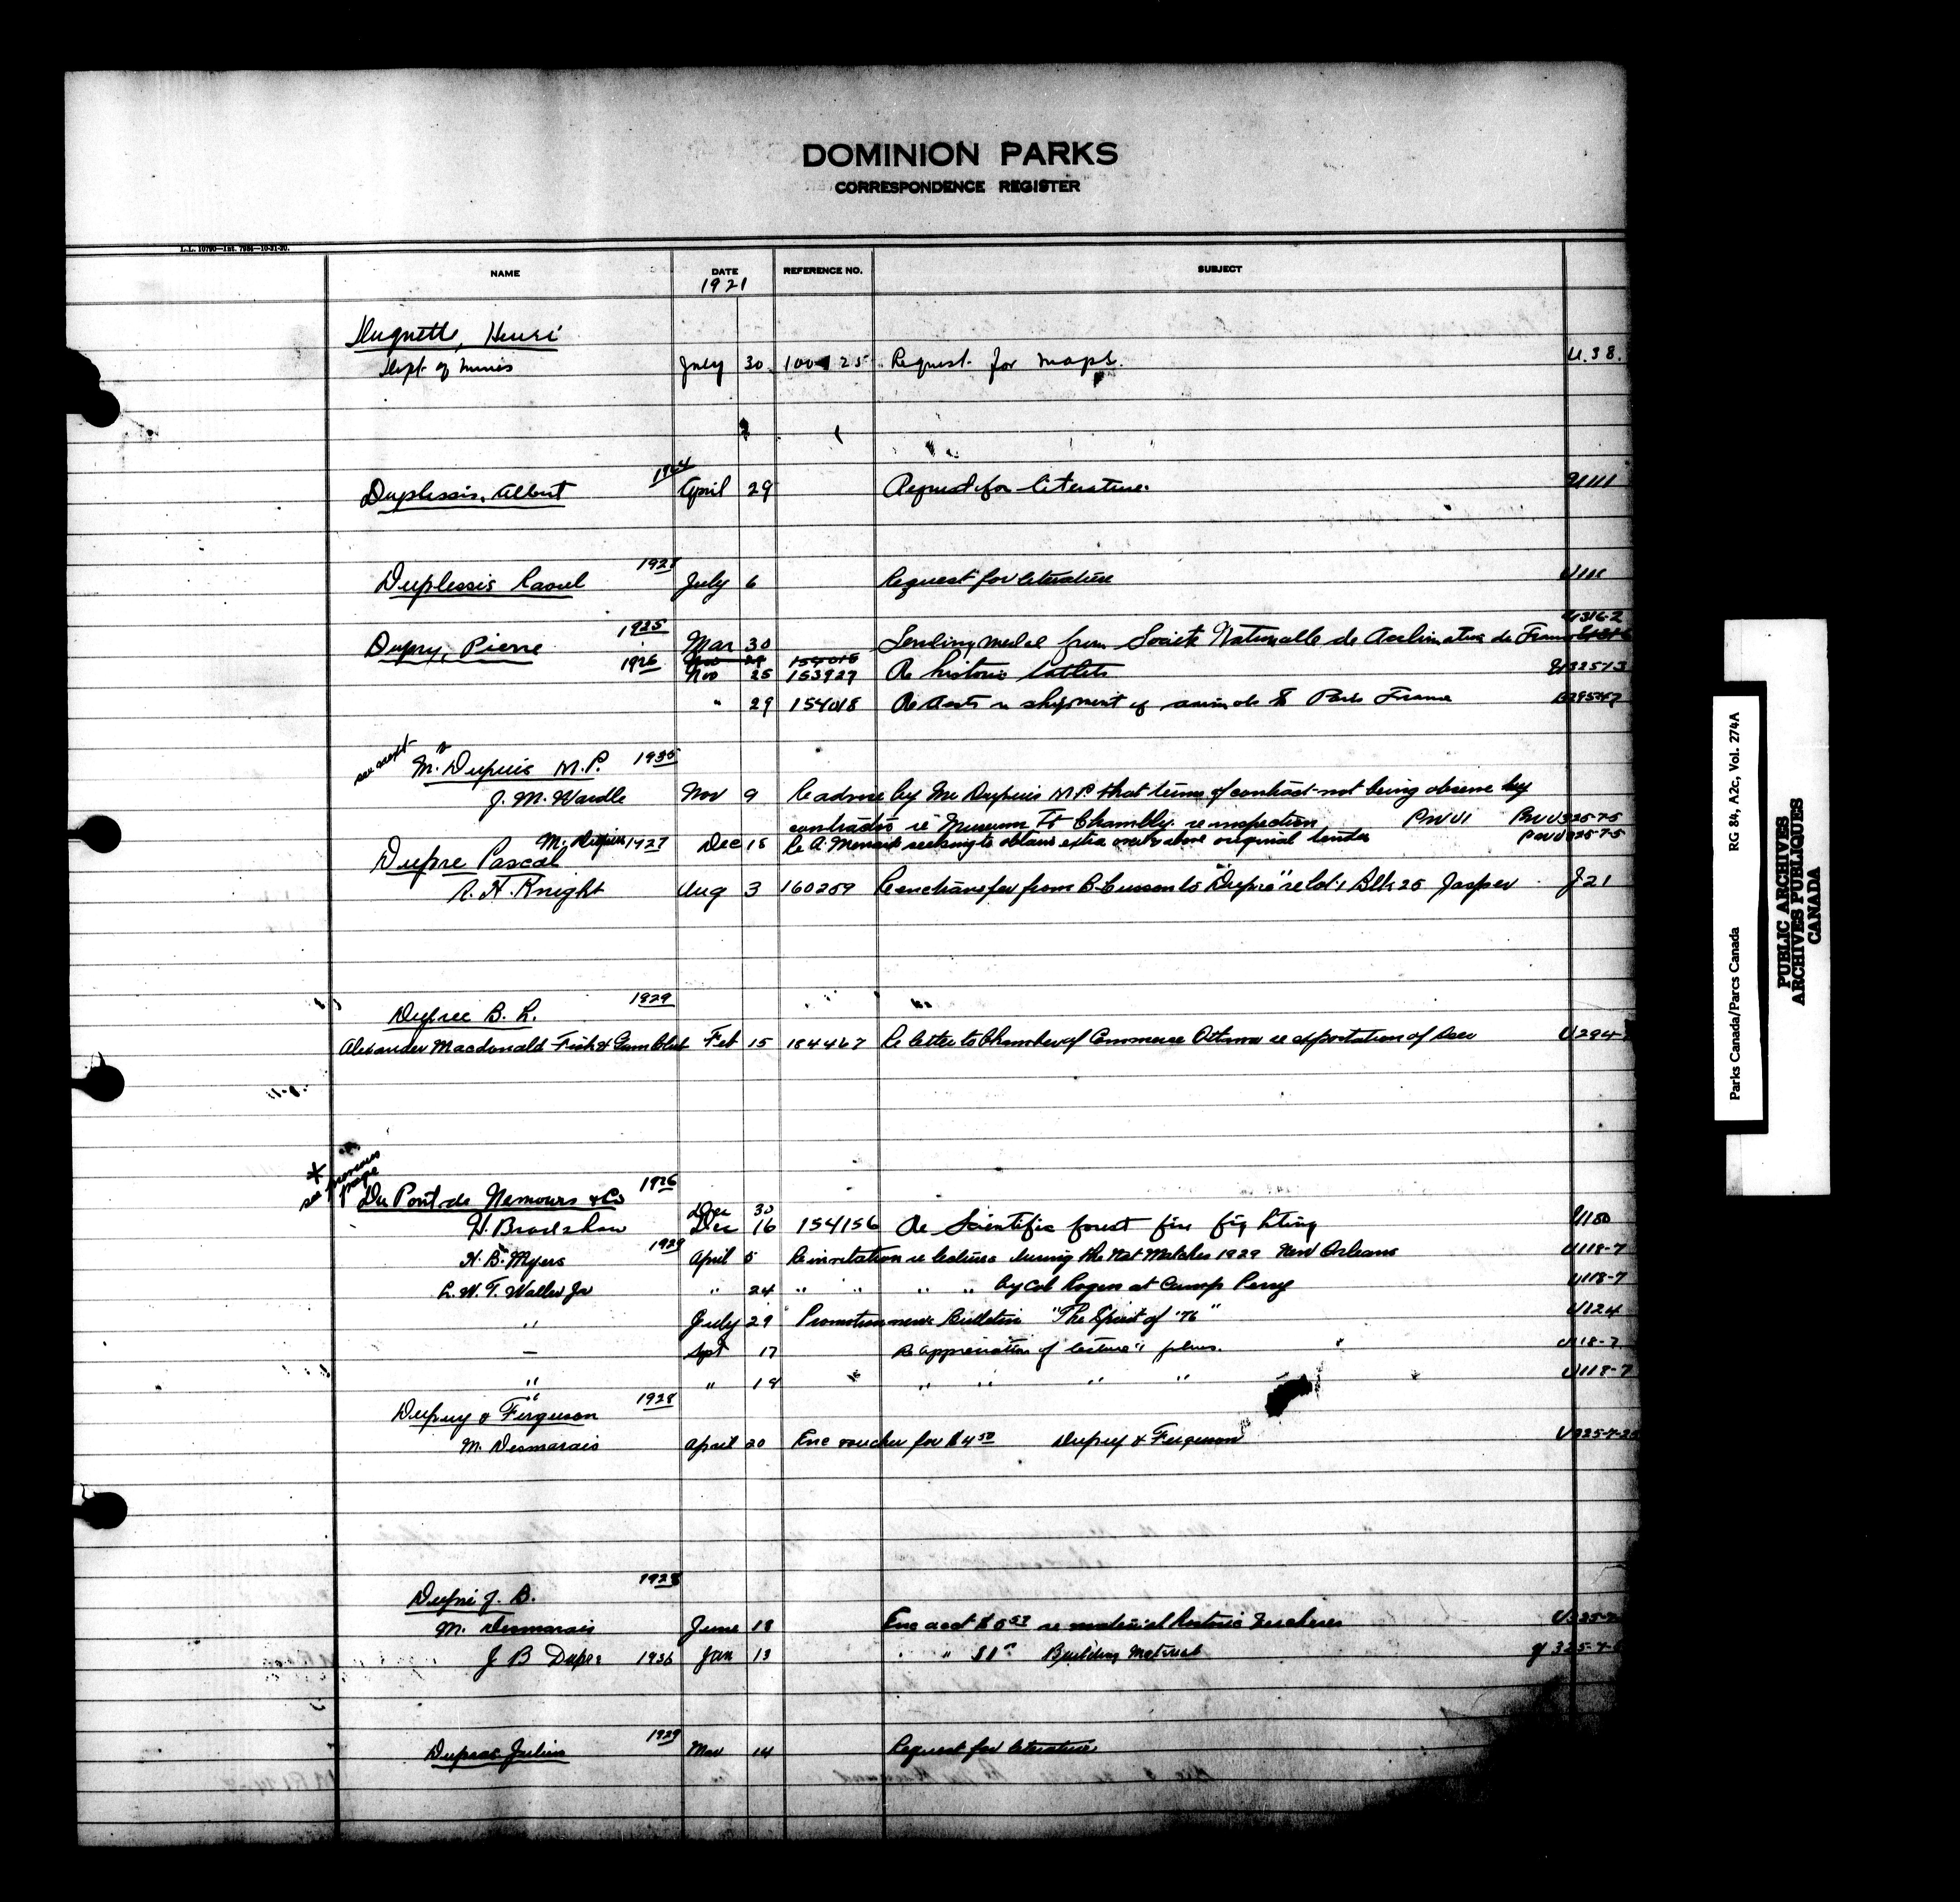 DOMINION PARKS
CORRESPONDENCE REGISTER
L.L. 10790—Int. 7984—10-21-20.
NAME DATE REFERENCE NO. SUBJECT
1921
Henri
Dept. of Mines July 30 100 125 Request for maps. U.38.
Duplessis, Albert April 29 Request for literature. U111
1928
Duplessis Raoul July 6 Request for literature
U316-2
1925
Dupry, Pierre Mar 30 Sending medal from Societe Nationalle de Acclimation de France
154018
1926 Nov 25 153927 Re historic tablets
" 29 154018 Re shipment of animals to Paris France
see sept
Mr. Dupuis M.P. 1935
J. M. Wardle Nov 9 Re advise by Mr Dupuis M.P. that terms of contract not being observe by
contractor re Museum Ft Chambly re inspection
M. Dupuis Dec 18 Re A. Menard seeking to obtain extra over & above original tender
Dupre Pascal 1927
A. H. Knight Aug 3 160259 Re transfer from B. to "Dupre" re Lot 1 Blk 25 Jasper J 21
1929
Dupree B. L.
Alexander Macdonald Fish & Game Club Feb 15 184467 Re letter to Chamber of Commerce Ottawa re exportation of deer U294-
* see previous page
Du Pont de Nemours & Co 1926
Dec 30
H. Bradshaw Dec 16 154156 Re Scientific forest fire fighting U180
H. B. Myers 1929 April 5 Re invitation re lecture during the Nat Matches 1929 New Orleans U118-7
L. W. T. Waller Jr " 24 " " " " by Col Rogers at Camp Perry U118-7
" July 29 Bulletin "The Spirit of '76" U124
— Sept 17 Re appreciation of lecture & films. U118-7
" " 19 " " " " U118-7
Dupuy & Ferguson 1928
M. Desmarais April 20 Enc voucher for $4.50 Dupuy & Ferguson
1928
Dupre J. B.
M. Desmarais June 18 Enc acct re material historic
J B Dupre 1936 Jan 13 " Building Material
1929
Dupras Julien Mar 14 Request for literature
Parks Canada/Parcs Canada RG 84, A2c, Vol. 274A
PUBLIC ARCHIVES
ARCHIVES PUBLIQUES
CANADA